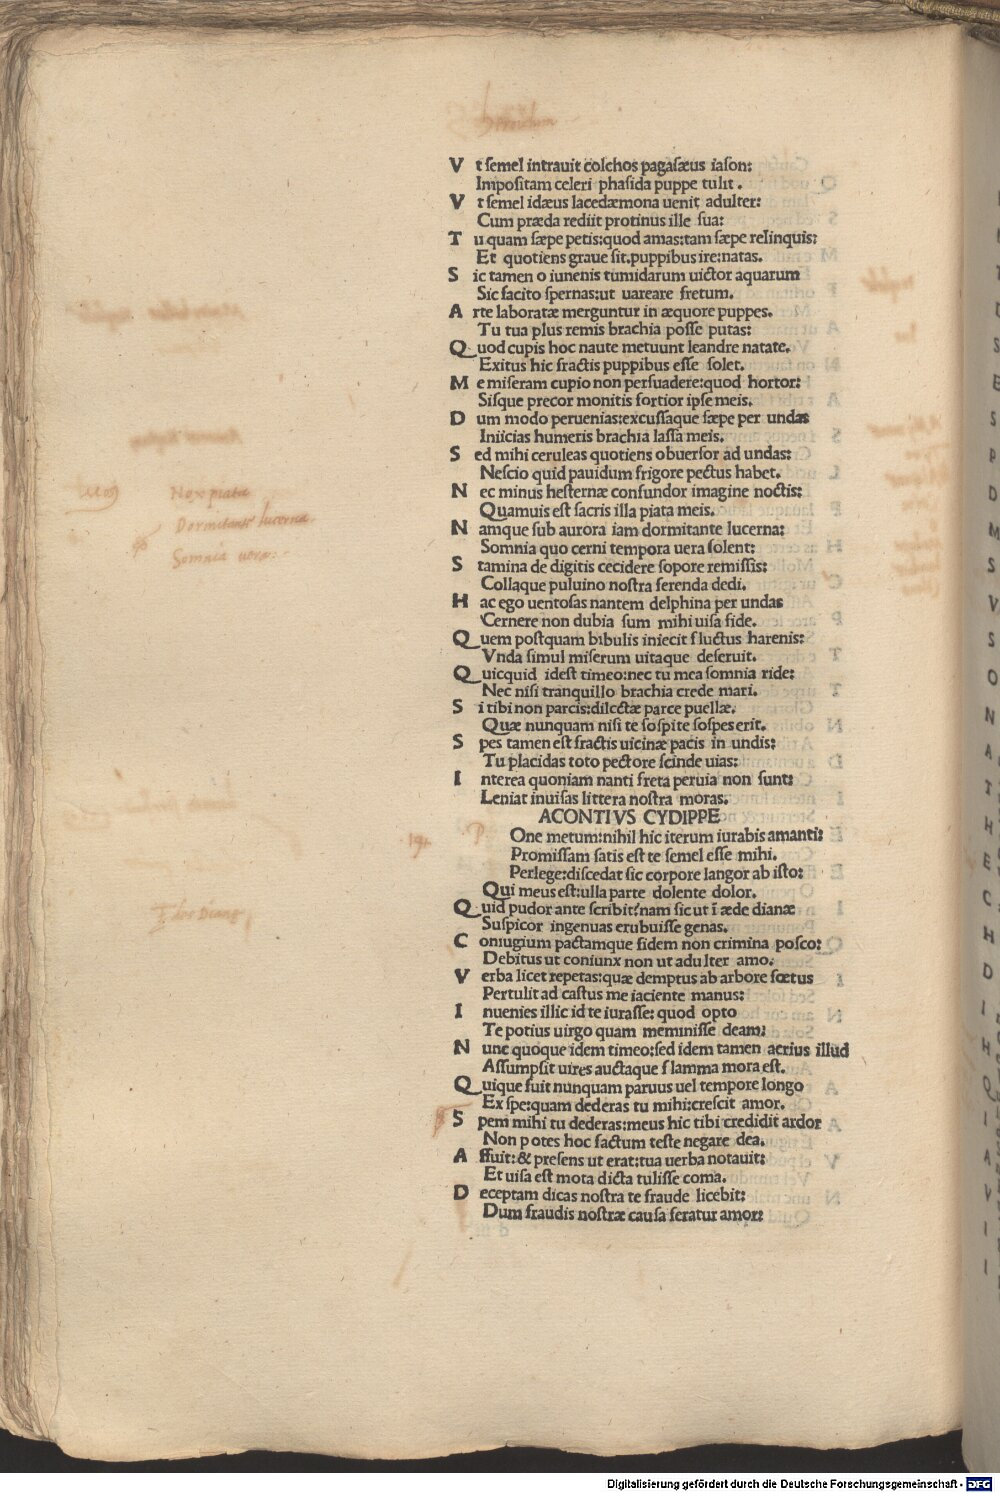 V t semel intrauit colchos pagasæus iason:
Impositam celeri phasida puppe tulit.
V t semel idæus lacedæmona uenit adulter:
Cum præda rediit protinus ille sua:
T u quam sæpe petis:quod amas:tam sæpe relinquis:
Et quotiens graue sit.puppibus ire:natas.
S ic tamen o iuuenis tumidarum uictor aquarum
Sic facito spernas:ut uareare fretum.
A rte laboratæ merguntur in æquore puppes.
Tu tua plus remis brachia posse putas:
Q uod cupis hoc naute metuunt leandre natate.
Exitus hic fractis puppibus esse solet.
M e miseram cupio non persuadere:quod hortor:
Sisque precor monitis fortior ipse meis.
D um modo peruenias:excussaque sæpe per undas
Iniicias humeris brachia lassa meis.
S ed mihi ceruleas quotiens obuersor ad undas:
Nescio quid pauidum frigore pectus habet.
N ec minus hesternæ confundor imagine noctis:
Quamuis est sacris illa piata meis.
N amque sub aurora iam dormitante lucerna:
Somnia quo cerni tempora uera solent:
S tamina de digitis cecidere sopore remissis:
Collaque puluino nostra ferenda dedi.
H ac ego uentosas nantem delphina per undas
Cernere non dubia sum mihi uisa fide.
Q uem postquam bibulis iniecit fluctus harenis:
Vnda simul miserum uitaque deseruit.
Q uicquid id est timeo:nec tu mea somnia ride:
Nec nisi tranquillo brachia crede mari.
S i tibi non parcis:dilectæ parce puellæ.
Quæ nunquam nisi te sospite sospes erit.
S pes tamen est fractis uicinæ pacis in undis:
Tu placidas toto pectore scinde uias:
I nterea quoniam nanti freta peruia non sunt:
Leniat inuisas littera nostra moras.
ACONTIVS CYDIPPE
P One metum:nihil hic iterum iurabis amanti:
Promissam satis est te semel esse mihi.
Perlege:discedat sic corpore langor ab isto:
Qui meus est:ulla parte dolente dolor.
Q uid pudor ante scribit?nam sic ut ĩ æde dianæ
Suspicor ingenuas erubuisse genas.
C oniugium pactamque fidem non crimina posco:
Debitus ut coniunx non ut adulter amo.
V erba licet repetas:quæ demptus ab arbore fœtus
Pertulit ad castus me iaciente manus:
I nuenies illic id te iurasse: quod opto
Te potius uirgo quam meminisse deam:
N unc quoque idem timeo:sed idem tamen acrius illud
Assumpsit uires auctaque flamma mora est.
Q uique fuit nunquam paruus uel tempore longo
Ex spe:quam dederas tu mihi:crescit amor.
S pem mihi tu dederas:meus hic tibi credidit ardor
Non potes hoc factum teste negare dea.
A ffuit:& presens ut erat:tua uerba notauit:
Et uisa est mota dicta tulisse coma.
D eceptam dicas nostra te fraude licebit:
Dum fraudis nostræ causa feratur amor:
Nox piata
Dormitante lucerna
Somnia uera
191
Digitalisierung gefördert durch die Deutsche Forschungsgemeinschaft - DFG